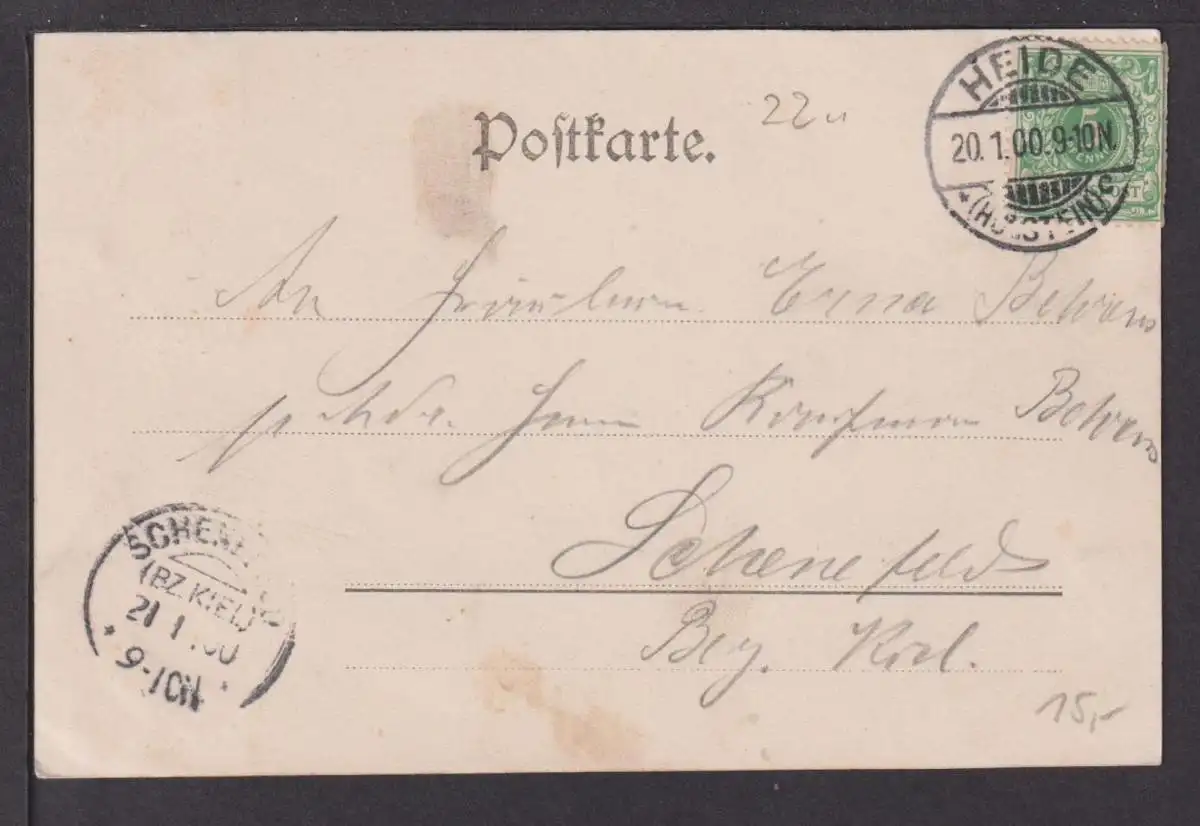 Postkarte.
22
HEIDE
20.1.00.9-10N.
(HOLSTEIN) C
5
An Fräulein Erna Behrens
p Adr. Herrn Kaufmann Behrens
Schenefeld
Bez. Kiel.
SCHENEFELD
(BZ.KIEL)
21 1 .00
9-10N
15,-